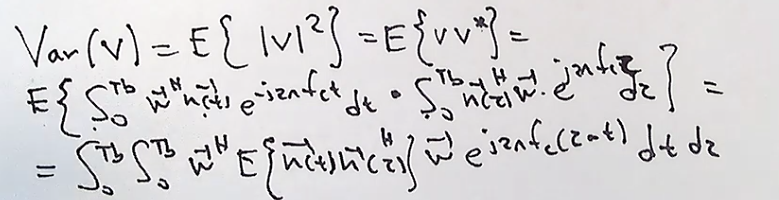 Var(v) = E{ |v|²} = E{vv*} =
E{∫₀^Tb w⃗^H n⃗(t) e^-j2πfct dt · ∫₀^Tb n⃗(τ)^H w⃗ · e^j2πfcτ dτ} =
= ∫₀^Tb ∫₀^Tb w⃗^H E{n⃗(t) n⃗(τ)^H} w⃗ e^j2πfc(τ-t) dt dτ